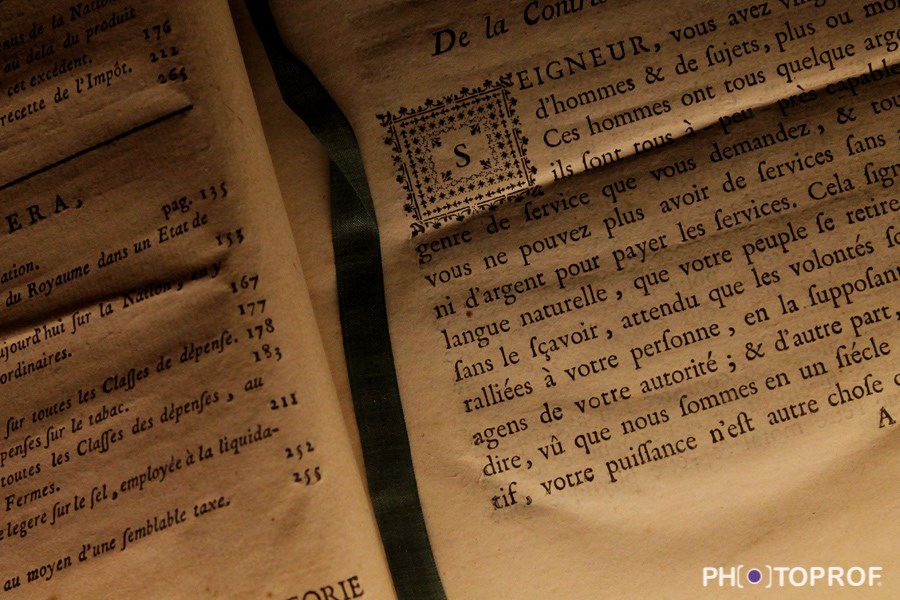 nus de la Nation
au delà du produit
cet excédent. 176
recette de l'Impôt. 212
265
ERA,
pag. 135
ation.
du Royaume dans un Etat de
153
ujourd'hui ſur la Nation, y en y
ordinaires. 167
177
ſur toutes les Claſſes de dépenſe. 178
penſes ſur le tabac. 183
toutes les Claſſes des dépenſes, au
Fermes. 211
legere ſur le ſel, employée à la liquida-
252
255
au moyen d'une ſemblable taxe.
TORIE
De la Contri
SEIGNEUR, vous avez ving
d'hommes & de ſujets, plus ou mo
Ces hommes ont tous quelque arge
ils ſont tous à peu près capable
genre de ſervice que vous demandez, & tou
vous ne pouvez plus avoir de ſervices ſans
ni d'argent pour payer les ſervices. Cela ſign
langue naturelle, que votre peuple ſe retire
ſans le ſçavoir, attendu que les volontés ſo
ralliées à votre perſonne, en la ſuppoſant
agens de votre autorité ; & d'autre part,
dire, vû que nous ſommes en un ſiécle
tif, votre puiſſance n'eſt autre choſe
A
PHOTOPROF